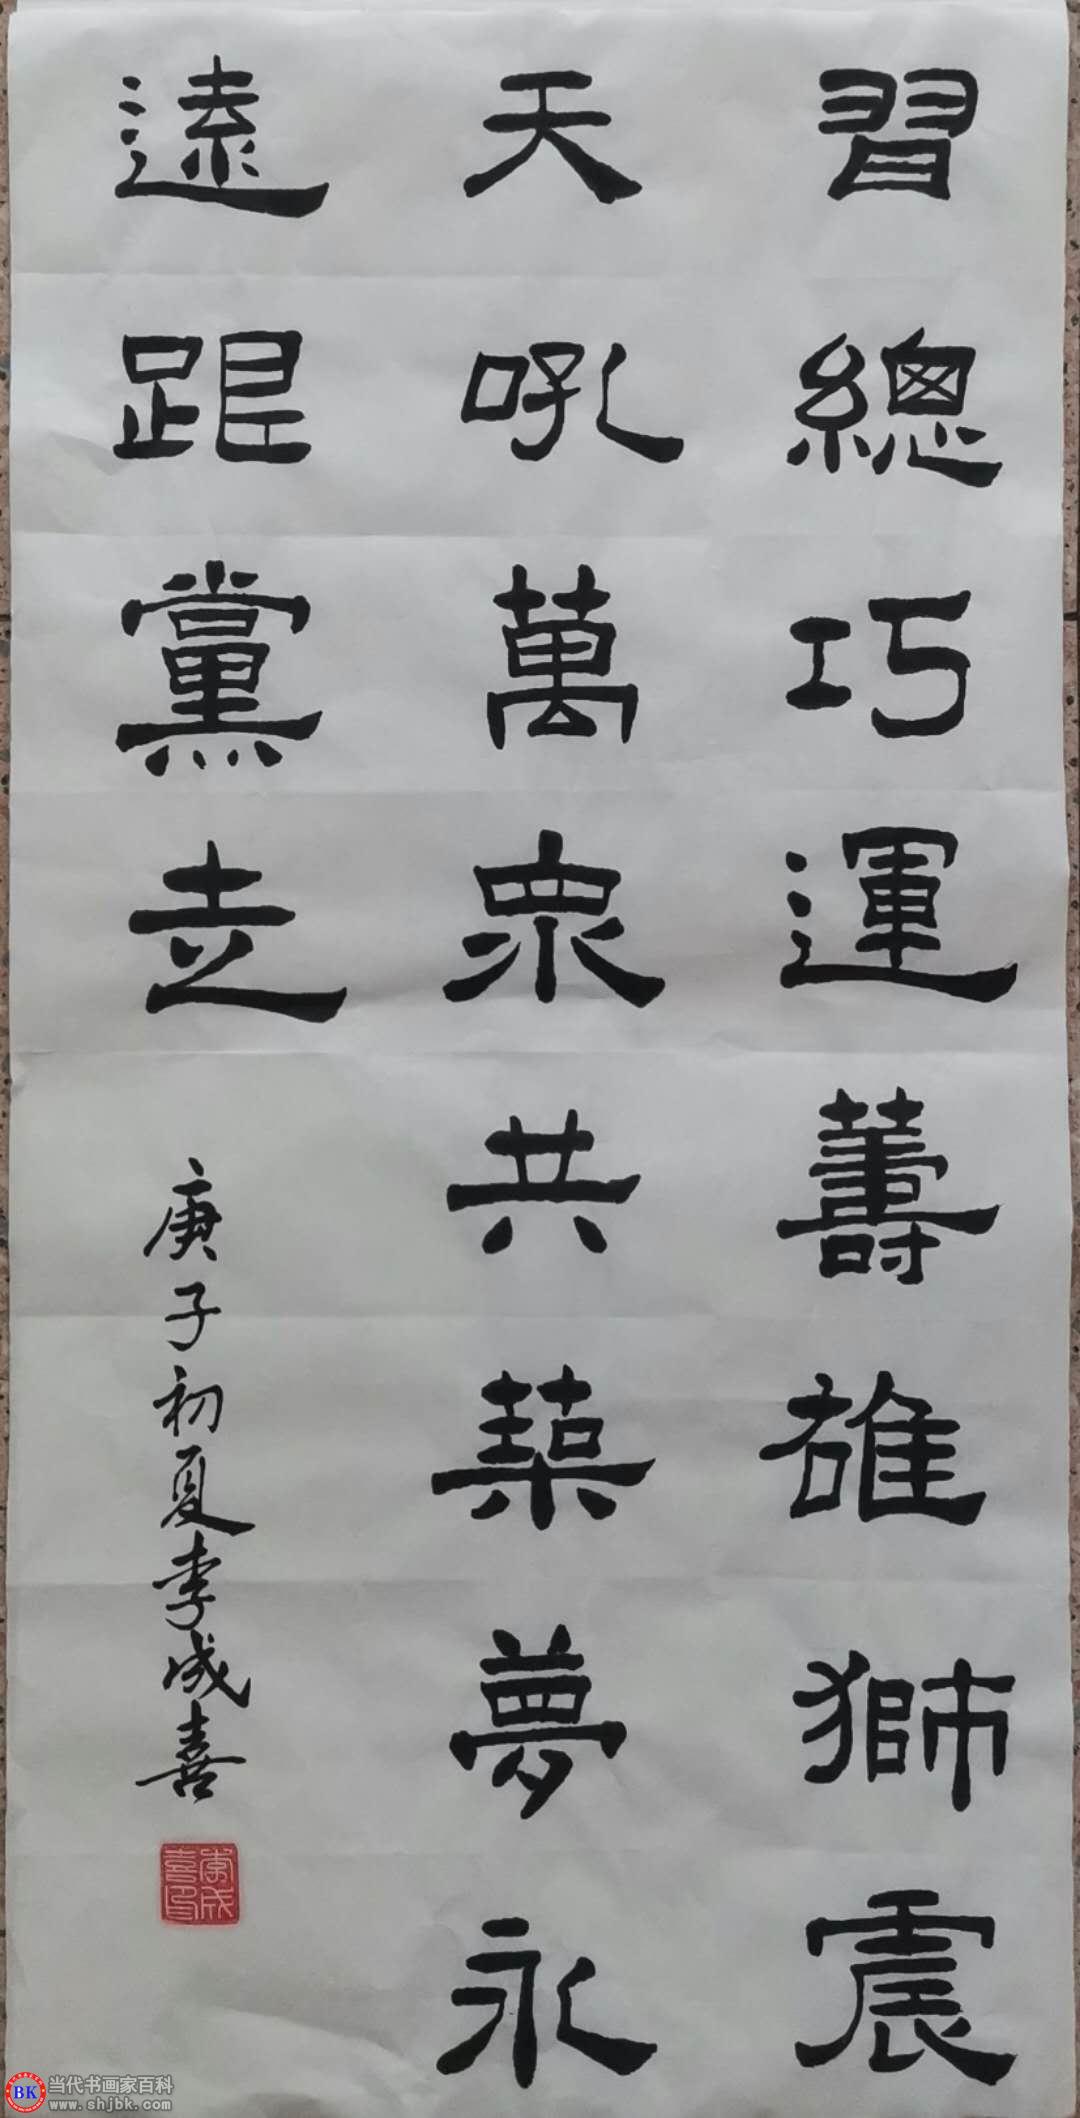 習總巧運籌雄獅震
天吼萬眾共築夢永
遠跟黨走
庚子初夏李成喜
李成喜印
BK
当代书画家百科
www.shjbk.com